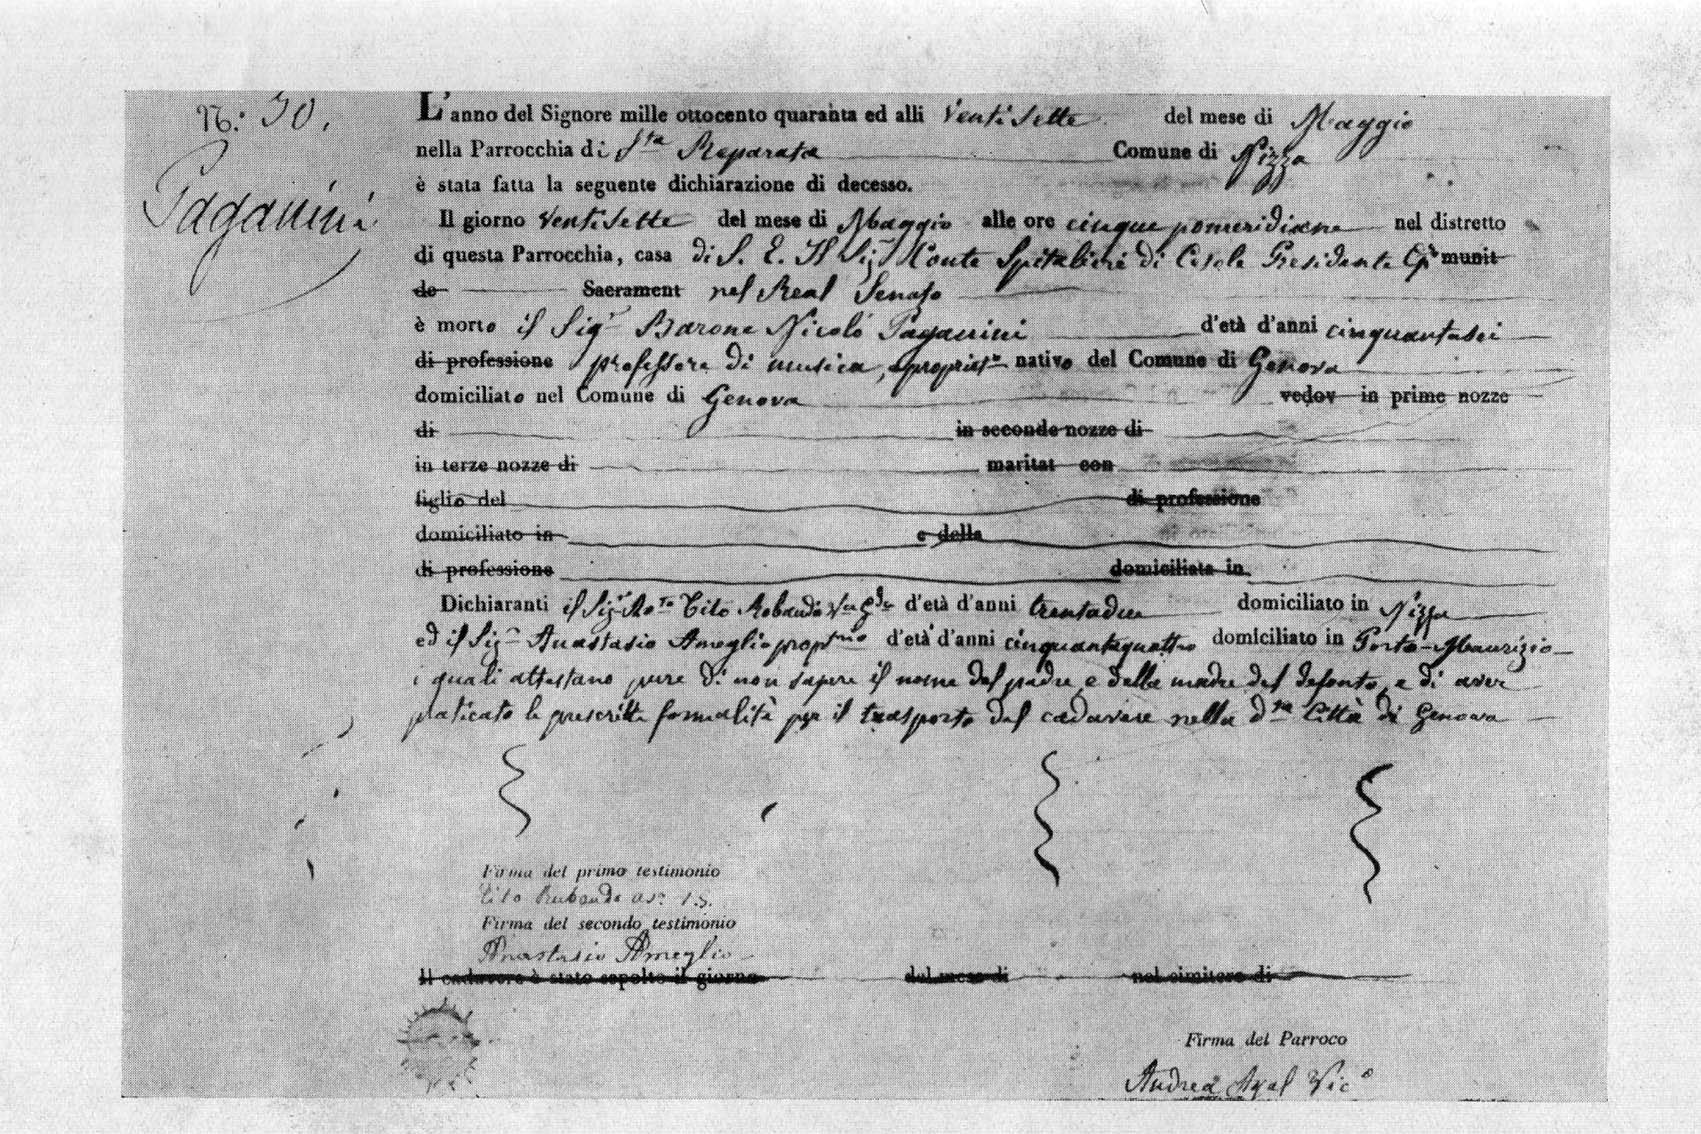 N: 50.
Paganini
L'anno del Signore mille ottocento quaranta ed alli Ventisette del mese di Maggio
nella Parrocchia di Sta Reparata Comune di Nizza
è stata fatta la seguente dichiarazione di decesso.
Il giorno Ventisette del mese di Maggio alle ore cinque pomeridiane nel distretto
di questa Parrocchia, casa di S. E. Il Sigr Conte Spitalieri di Cesole Presidente munit
de Sacrament nel Real Senato
è morto il Sigr Barone Nicolò Paganini d'età d'anni cinquantasei
di professione professore di musica, e propriet° nativo del Comune di Genova
domiciliato nel Comune di Genova vedov in prime nozze
di in seconde nozze di
in terze nozze di maritat con
figlio del di professione
domiciliato in e della
di professione domiciliata in
Dichiaranti il Sigr Tito Rubaudo d'età d'anni trentadue domiciliato in Nizza
ed il Sigr Anastasio Ameglio proprrio d'età d'anni cinquantaquattro domiciliato in Porto-Maurizio
i quali attestano pure di non sapere il nome del padre e della madre del defonto, e di aver
praticato le prescritte formalità per il trasporto del cadavere nella dta Città di Genova
Firma del primo testimonio
Tito Rubaudo
Firma del secondo testimonio
Anastasio Ameglio
Il cadavere è stato sepolto il giorno del mese di nel cimitero di
Firma del Parroco
Andrea Vic°